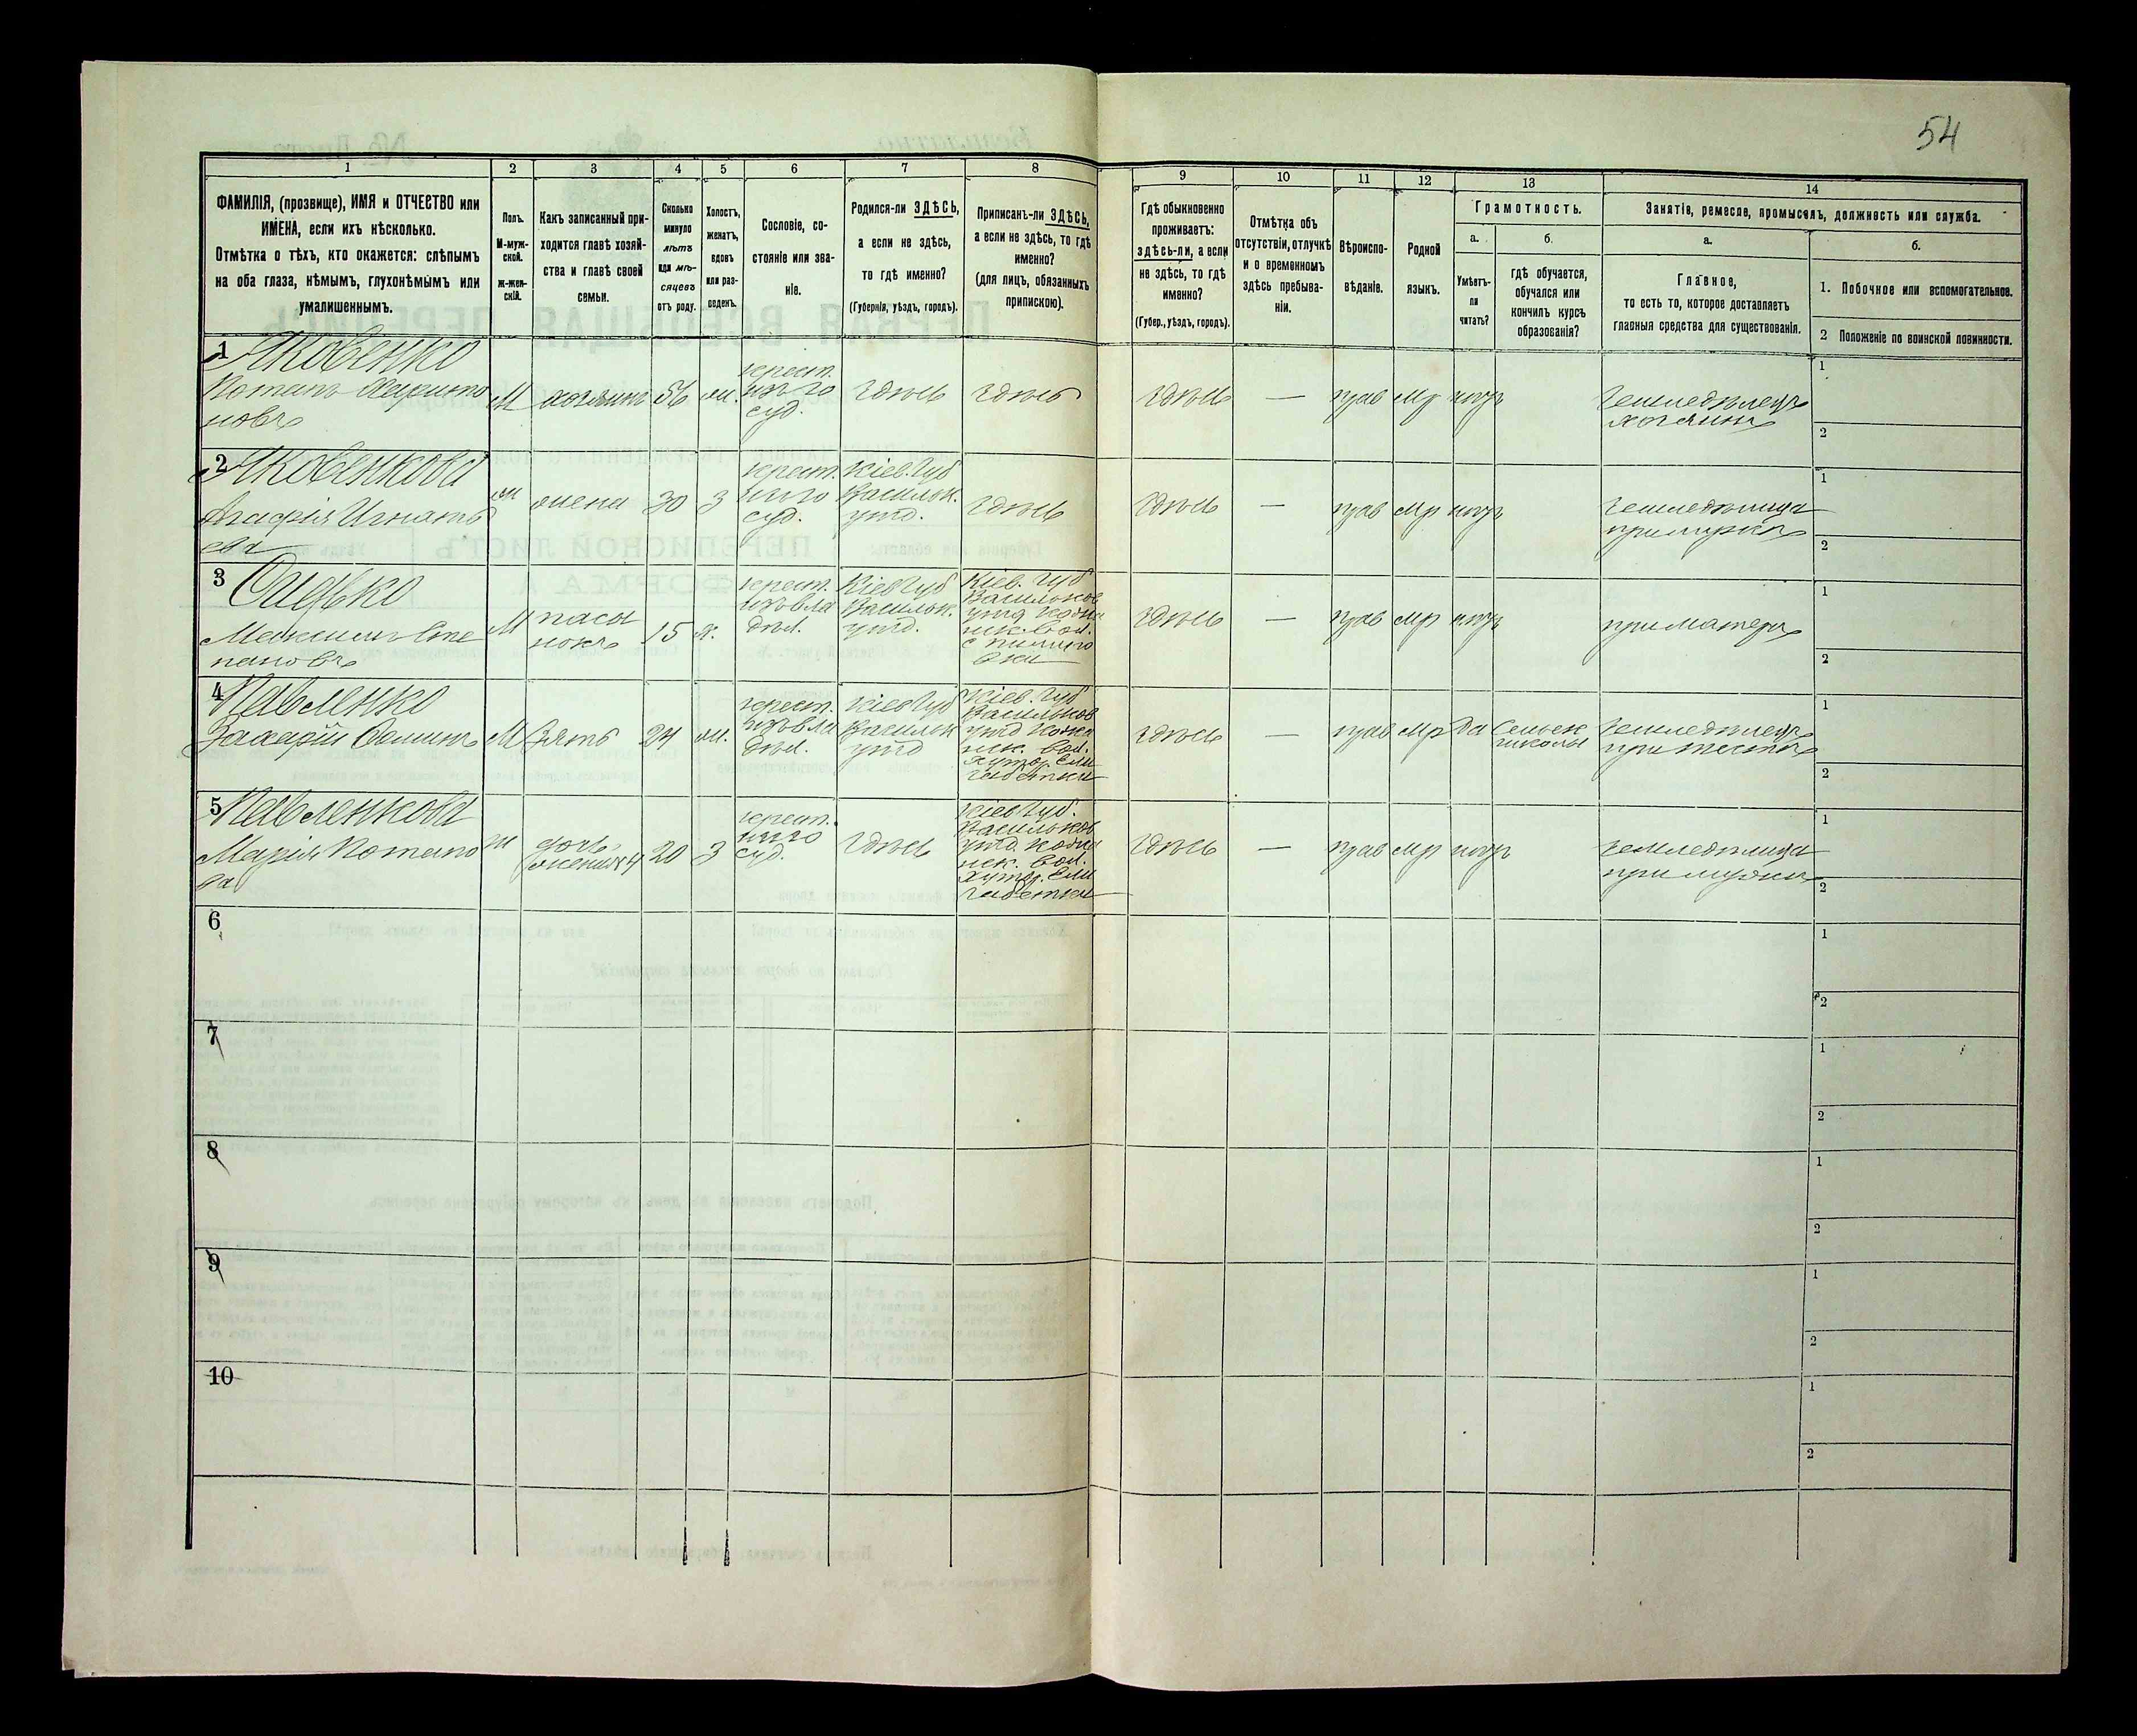 54
1
2
3
4
5
6
7
8
9
10
11
12
13
14
ФАМИЛІЯ, (прозвище), ИМЯ и ОТЧЕСТВО или
ИМЕНА, если ихъ нѣсколько.
Отмѣтка о тѣхъ, кто окажется: слѣпымъ
на оба глаза, нѣмымъ, глухонѣмымъ или
умалишеннымъ.
Полъ.
М-муж-
ской.
ж-жен-
скій.
Какъ записанный при-
ходится главѣ хозяй-
ства и главѣ своей
семьи.
Сколько
минуло
лѣтъ
или мѣ-
сяцевъ
отъ роду.
Холостъ,
женатъ,
вдовъ
или раз-
веденъ.
Сословіе, со-
стояніе или зва-
ніе.
Родился-ли ЗДѢСЬ,
а если не здѣсь,
то гдѣ именно?
(Губернія, уѣздъ, городъ).
Приписанъ-ли ЗДѢСЬ,
а если не здѣсь, то гдѣ
именно?
(для лицъ, обязанныхъ
припискою).
Гдѣ обыкновенно
проживаетъ:
здѣсь-ли, а если
не здѣсь, то гдѣ
именно?
(Губер., уѣздъ, городъ).
Отмѣтка объ
отсутствіи, отлучкѣ
и о временномъ
здѣсь пребыва-
ніи.
Вѣроиспо-
вѣданіе.
Родной
языкъ.
Грамотность.
а.
Умѣетъ-
ли
читать?
б.
гдѣ обучается,
обучался или
кончилъ курсъ
образованія?
Занятіе, ремесло, промыселъ, должность или служба.
а.
Главное,
то есть то, которое доставляетъ
главныя средства для существованія.
б.
1. Побочное или вспомогательное.
2 Положеніе по воинской повинности.
1 Яковенко
Потапъ Харито
новъ
М
хозяинъ
56
ж.
крест.
изъ го
суд.
здѣсь
здѣсь
здѣсь
—
прав
мр
нѣтъ
земледѣлецъ
хозяинъ
1
2
2 Яковенкова
Агафія Игнать
ева
ж
жена
30
З
крест.
изъ го
суд.
Кіев. губ
Васильк.
уѣзд.
здѣсь
здѣсь
—
прав
мр
нѣтъ
земледѣлица
при мужѣ
1
2
3
Максимъ Сте
пановъ
М
пасы
нокъ
15
х.
крест.
изъ вла
дѣл.
Кіев губ
Васильк.
уѣзд.
Кіев. губ
Васильков
уѣзд
вол.
здѣсь
—
прав
мр
нѣтъ
при матери
1
2
4 Павленко
Захарій Фоминъ
М
Зять
24
ж.
крест.
изъ вла
дѣл.
Кіев губ
Васильк
уѣзд
Кіев. губ
Васильков
уѣзд
вол.
хутор. Ели
заветки
здѣсь
—
прав
мр
да
Сельск
школы
земледѣлецъ
при тестѣ
1
2
5 Павленкова
Марія Потапо
ва
ж
дочь,
жена №4
20
З
крест.
изъ го
суд.
здѣсь
Кіев губ.
Васильков
уѣзд.
вол.
хутор. Ели
заветки
здѣсь
—
прав
мр
нѣтъ
земледѣлица
при мужѣ
1
2
6
1
2
7
1
2
8
1
2
9
1
2
10
1
2